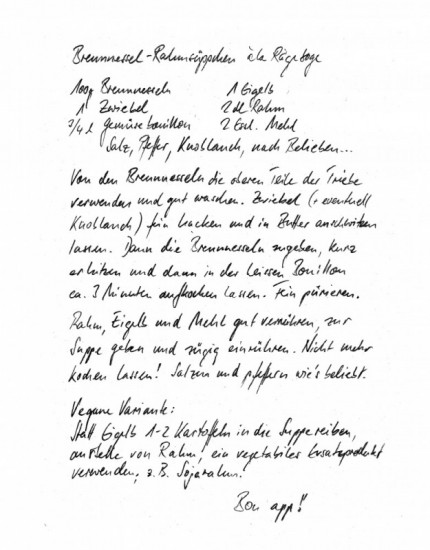 Brennnessel-Rahmsüppchen à la Rägeboge
100g Brennnesseln 1 Eigelb
1 Zwiebel 2 dl Rahm
3/4 l Gemüsebouillon 2 Essl. Mehl
Salz, Pfeffer, Knoblauch, nach Belieben...
Von den Brennnesseln die oberen Teile der Triebe
verwenden und gut waschen. Zwiebel (+ eventuell
Knoblauch) fein hacken und in Butter anschwitzen
lassen. Dann die Brennnesseln zugeben, kurz
erhitzen und dann in der heissen Bouillon
ca. 3 Minuten aufkochen lassen. Fein pürieren.
Rahm, Eigelb und Mehl gut verrühren, zur
Suppe geben und zügig einrühren. Nicht mehr
kochen lassen! Salzen und pfeffern wie's beliebt.
Vegane Variante:
Statt Eigelb 1-2 Kartoffeln in die Suppe reiben,
anstelle von Rahm, ein vegetabiles Ersatzprodukt
verwenden, z.B. Sojarahm.
Bon app!!